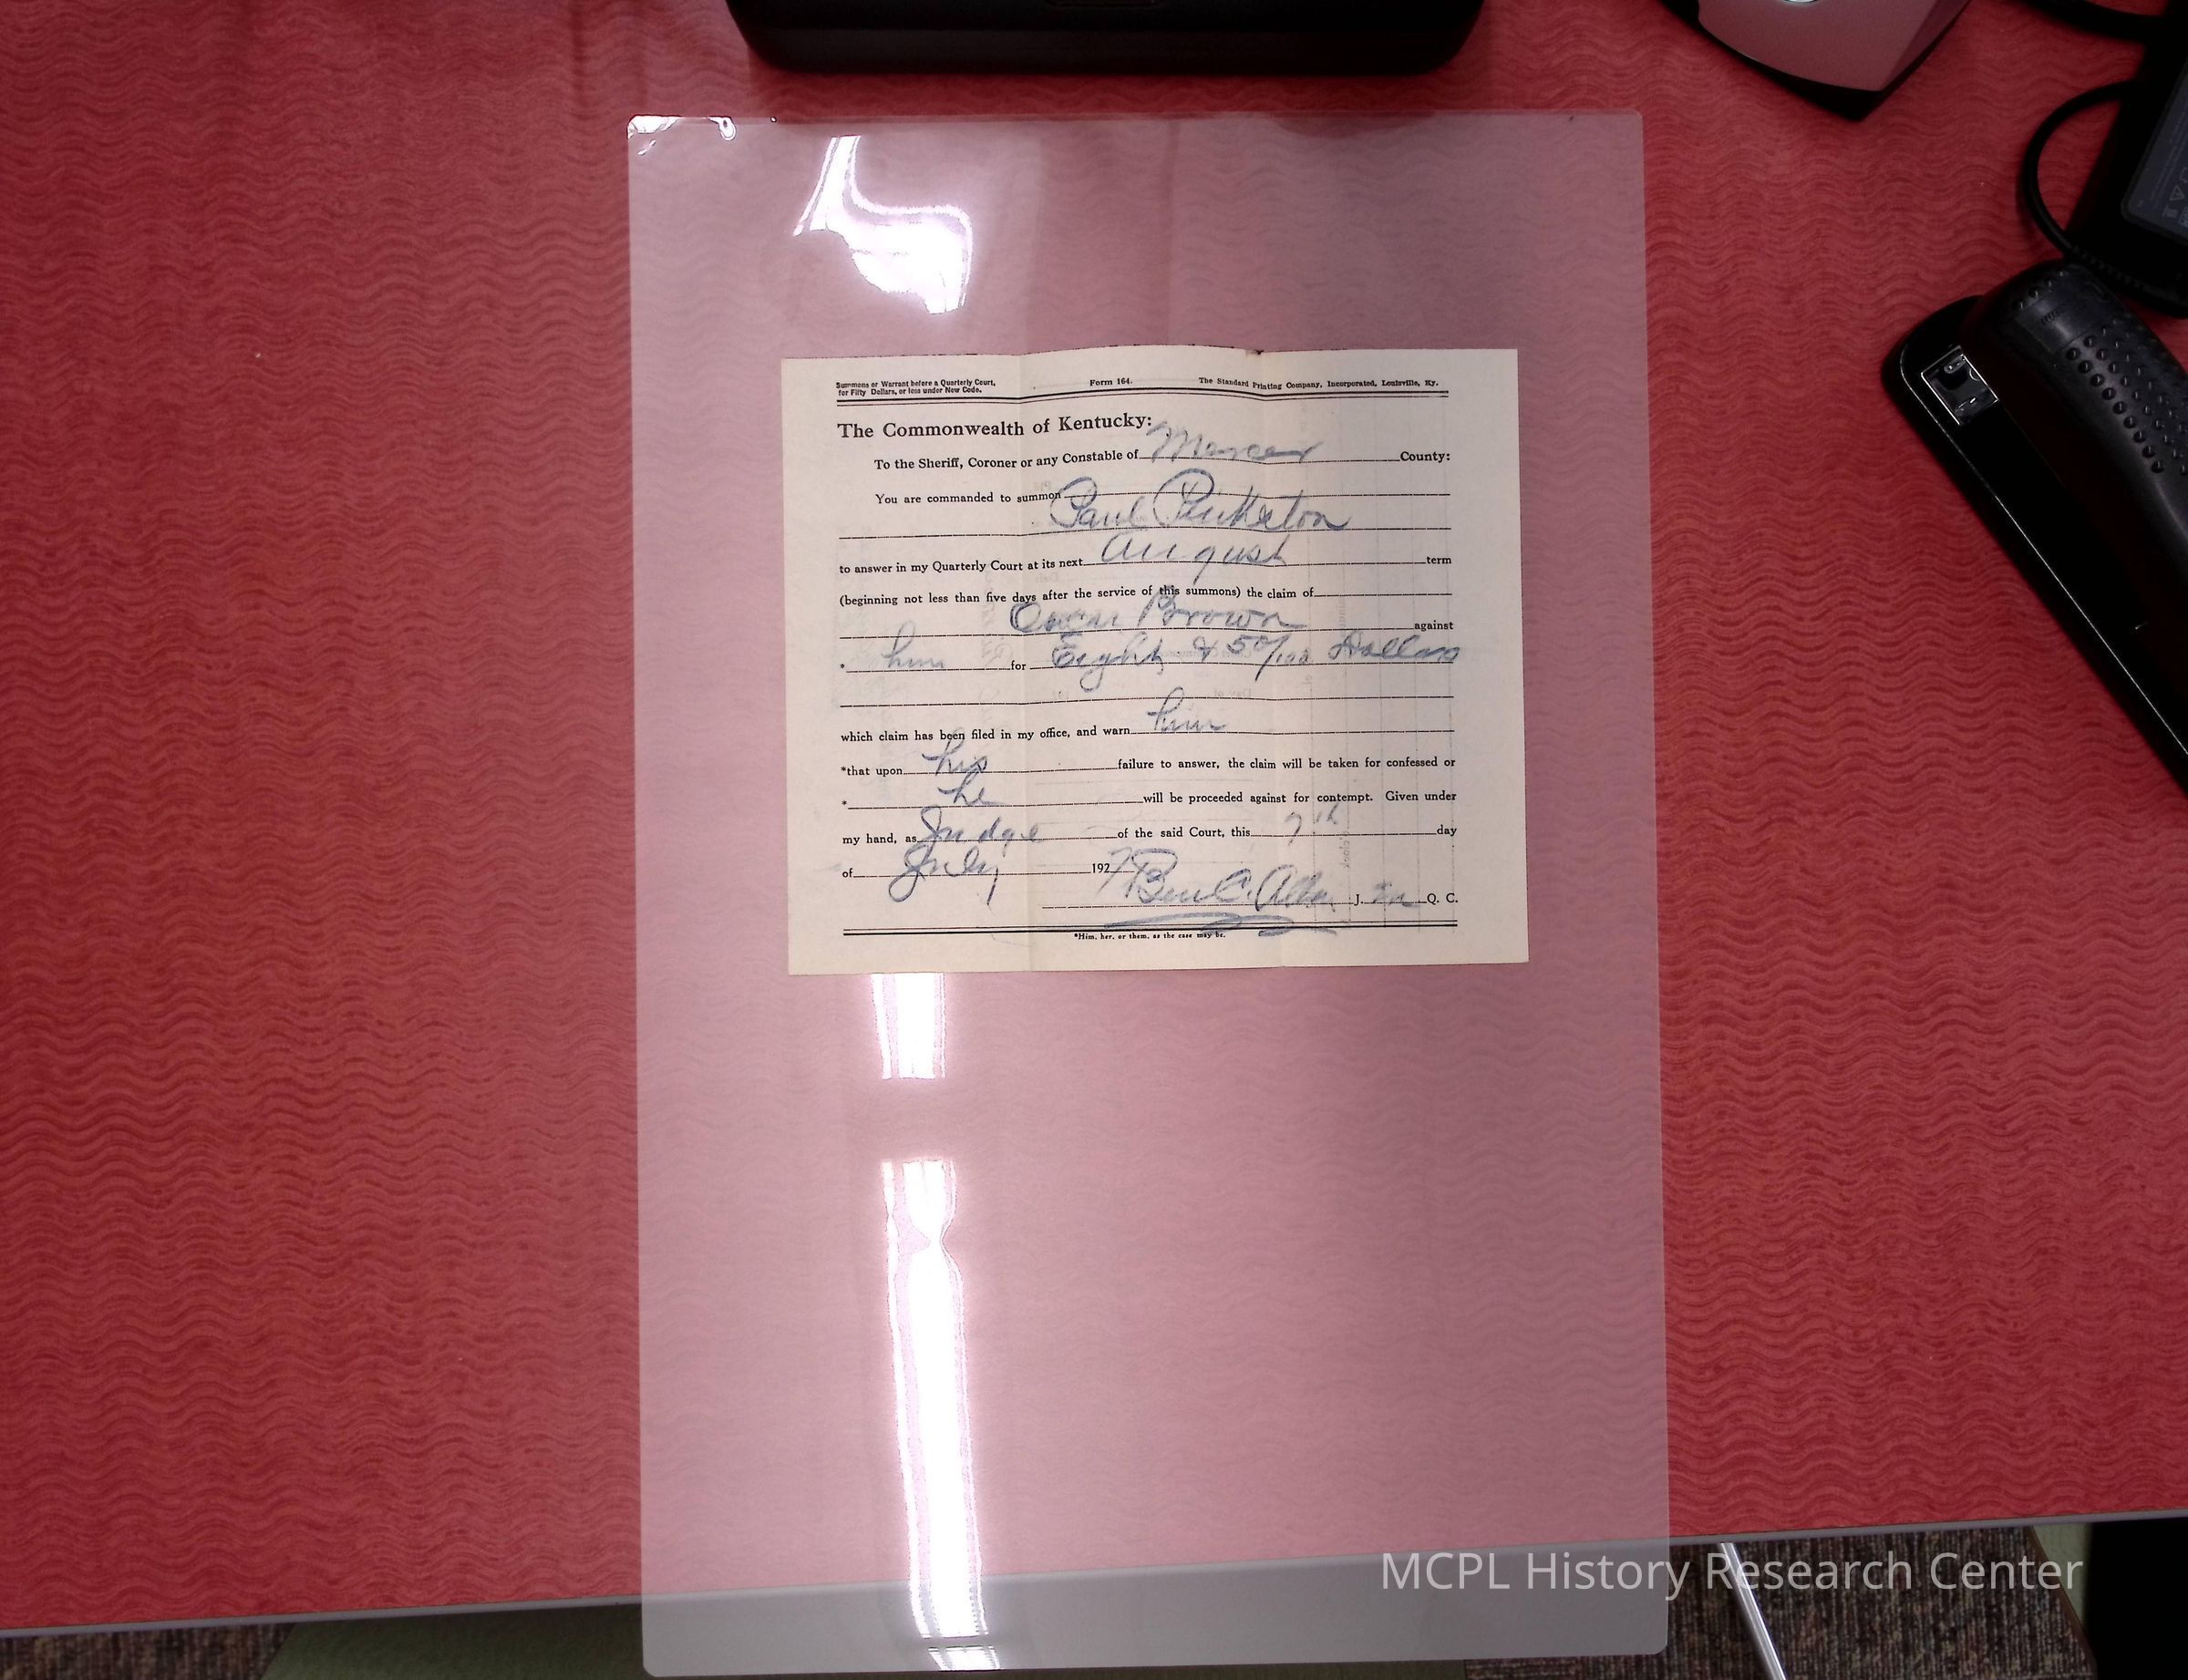 Summons or Warrant before a Quarterly Court, Form 164. The Standard Printing Company, Incorporated, Louisville, Ky.
for Fifty Dollars, or less under New Code.
The Commonwealth of Kentucky:
To the Sheriff, Coroner or any Constable of Mercer County:
You are commanded to summon
Paul Pinkston
to answer in my Quarterly Court at its next August term
(beginning not less than five days after the service of this summons) the claim of
Oscar Brown against
* him for Eight & 50/100 Dollars
which claim has been filed in my office, and warn him
*that upon his failure to answer, the claim will be taken for confessed or
* he will be proceeded against for contempt. Given under
my hand, as Judge of the said Court, this 7th day
of July 1927
Ben C. Allen J. M Q. C.
*Him, her, or them, as the case may be.
MCPL History Research Center